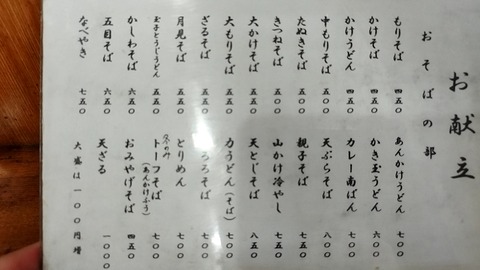 お献立
おそばの部
もりそば 四五〇
かけそば 四五〇
かけうどん 四五〇
中もりそば 五〇〇
たぬきそば 五〇〇
きつねそば 五〇〇
大かけそば 五五〇
大もりそば 五五〇
ざるそば 五五〇
月見そば 五五〇
玉子とじうどん 五五〇
かしわそば 六五〇
五目そば 六五〇
なべやき 七五〇
あんかけうどん 七〇〇
かき玉うどん 六〇〇
カレー南ばん 七〇〇
天ぷらそば 八〇〇
親子そば 七五〇
山かけ冷やし 七五〇
天とじそば 八五〇
力うどん(そば) 七〇〇
とろろそば 七〇〇
とりめん 七〇〇
冬のみ
トーフそば (あんかけふう) 七〇〇
おみやげそば 四五〇
天ざる 一〇〇〇
大盛は一〇〇円増